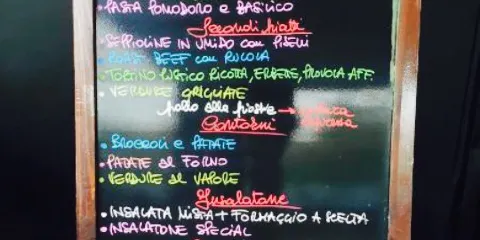 • PASTA POMODORO e BASILICO
Secondi Piatti
• SEPPIOLINE IN UMIDO con PISELLI
• ROAST BEEF con RUCOLA
• TORTINO RUSTICO RICOTTA, ERBETTE, PROVOLA AFF.
• VERDURE GRIGLIATE
pollo alla piastra →
Contorni
• BROCCOLI e PATATE
• PATATE al FORNO
• VERDURE al VAPORE
Insalatone
• INSALATA MISTA + FORMAGGIO A SCELTA
• INSALATONE SPECIAL